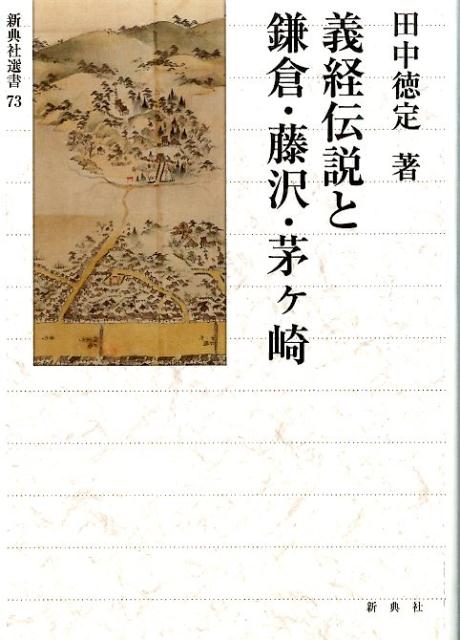 田中徳定 著
義経伝説と
鎌倉・藤沢・茅ヶ崎
新典社選書 73
新典社